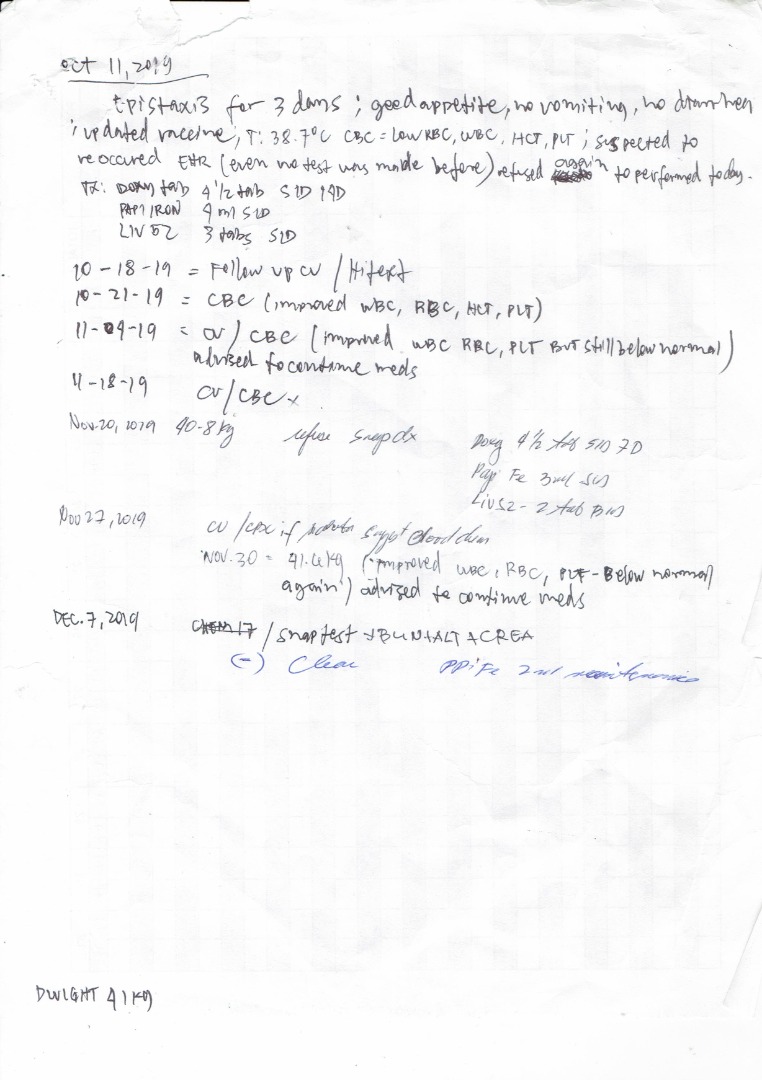 Oct 11, 2019
Epistaxis for 3 days ; good appetite, no vomiting, no diarrhea
; updated vaccine, T: 38.7°C CBC = Low RBC, WBC, HCT, PLT ; suspected to
reoccured EHR (even no test was made before) refused again to performed today.
TX: Doxy tab 4 1/2 tab SID
PAPI IRON 4 ml SID
LIV 52 3 tabs SID
10-18-19 = Follow up CU /
10-21-19 = CBC (improved WBC, RBC, HCT, PLT)
11-04-19 = CU / CBC (improved WBC RBC, PLT But still below normal)
advised to continue meds
11-18-19 CU / CBC
Nov. 20, 2019 40.8 kg refuse snap dx Doxy 4 1/2 tab SID 7D
Papi Fe 3 ml SID
Liv52 - 2 tab BID
Nov 27, 2019 CU / CBC if
NOV. 30 = 41.4 kg (improved WBC, RBC, PLT - Below normal
again) advised to continue meds
DEC. 7, 2019 CHEM 17 / snap test + BUN + ALT + CREA
(-) Clear PPi Fe 2 ml
DWIGHT 41 kg